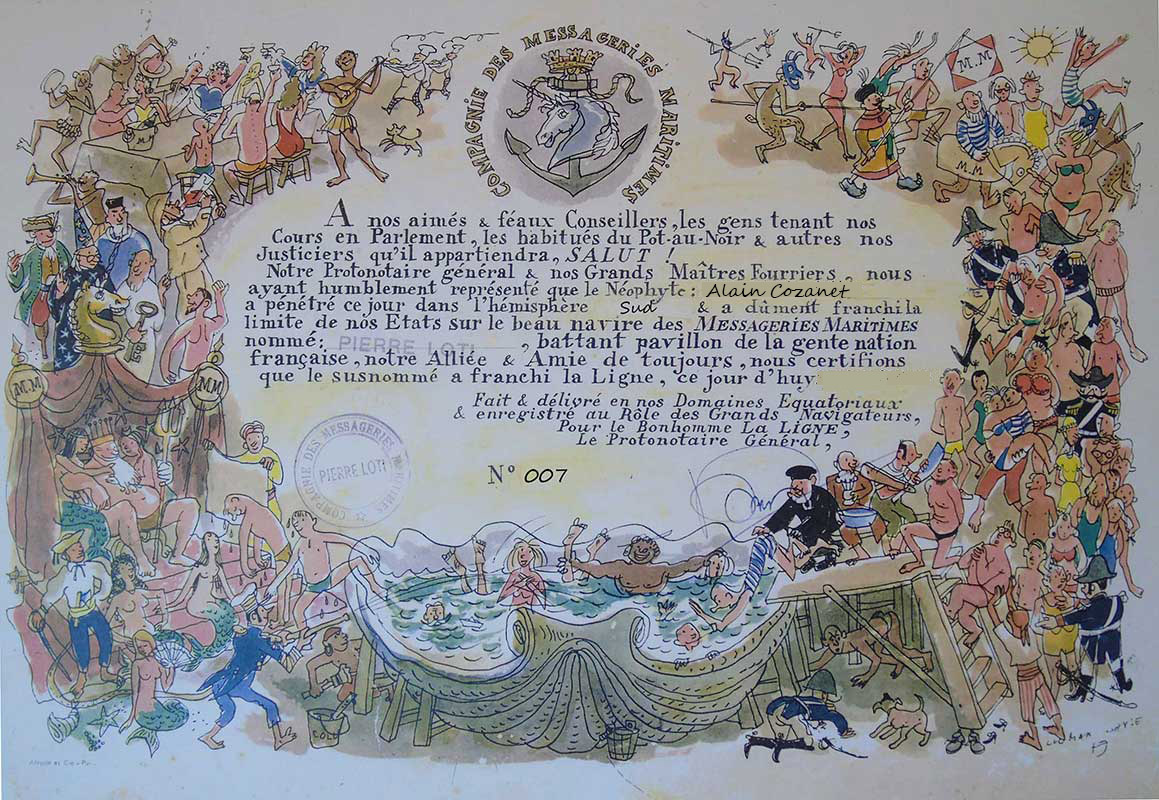 COMPAGNIE DES MESSAGERIES MARITIMES
M.M
M.M
A nos aimés & féaux Conseillers, les gens tenant nos
Cours en Parlement, les habitués du Pot-au-Noir & autres nos
Justiciers qu'il appartiendra, SALUT !
Notre Protonotaire général & nos Grands Maîtres Fourriers, nous
ayant humblement représenté que le Néophyte: Alain Cozanet
a pénétré ce jour dans l'hémisphère Sud & a dûment franchi la
limite de nos Etats sur le beau navire des MESSAGERIES MARITIMES
nommé: PIERRE LOTI, battant pavillon de la gente nation
française, notre Alliée & Amie de toujours, nous certifions
que le susnommé a franchi la Ligne, ce jour d'huy
M.M
M.M
Fait & délivré en nos Domaines Equatoriaux
& enregistré au Rôle des Grands Navigateurs,
Pour le Bonhomme La LIGNE,
Le Protonotaire Général,
COMPAGNIE DES MESSAGERIES MARITIMES
PIERRE LOTI
N° 007